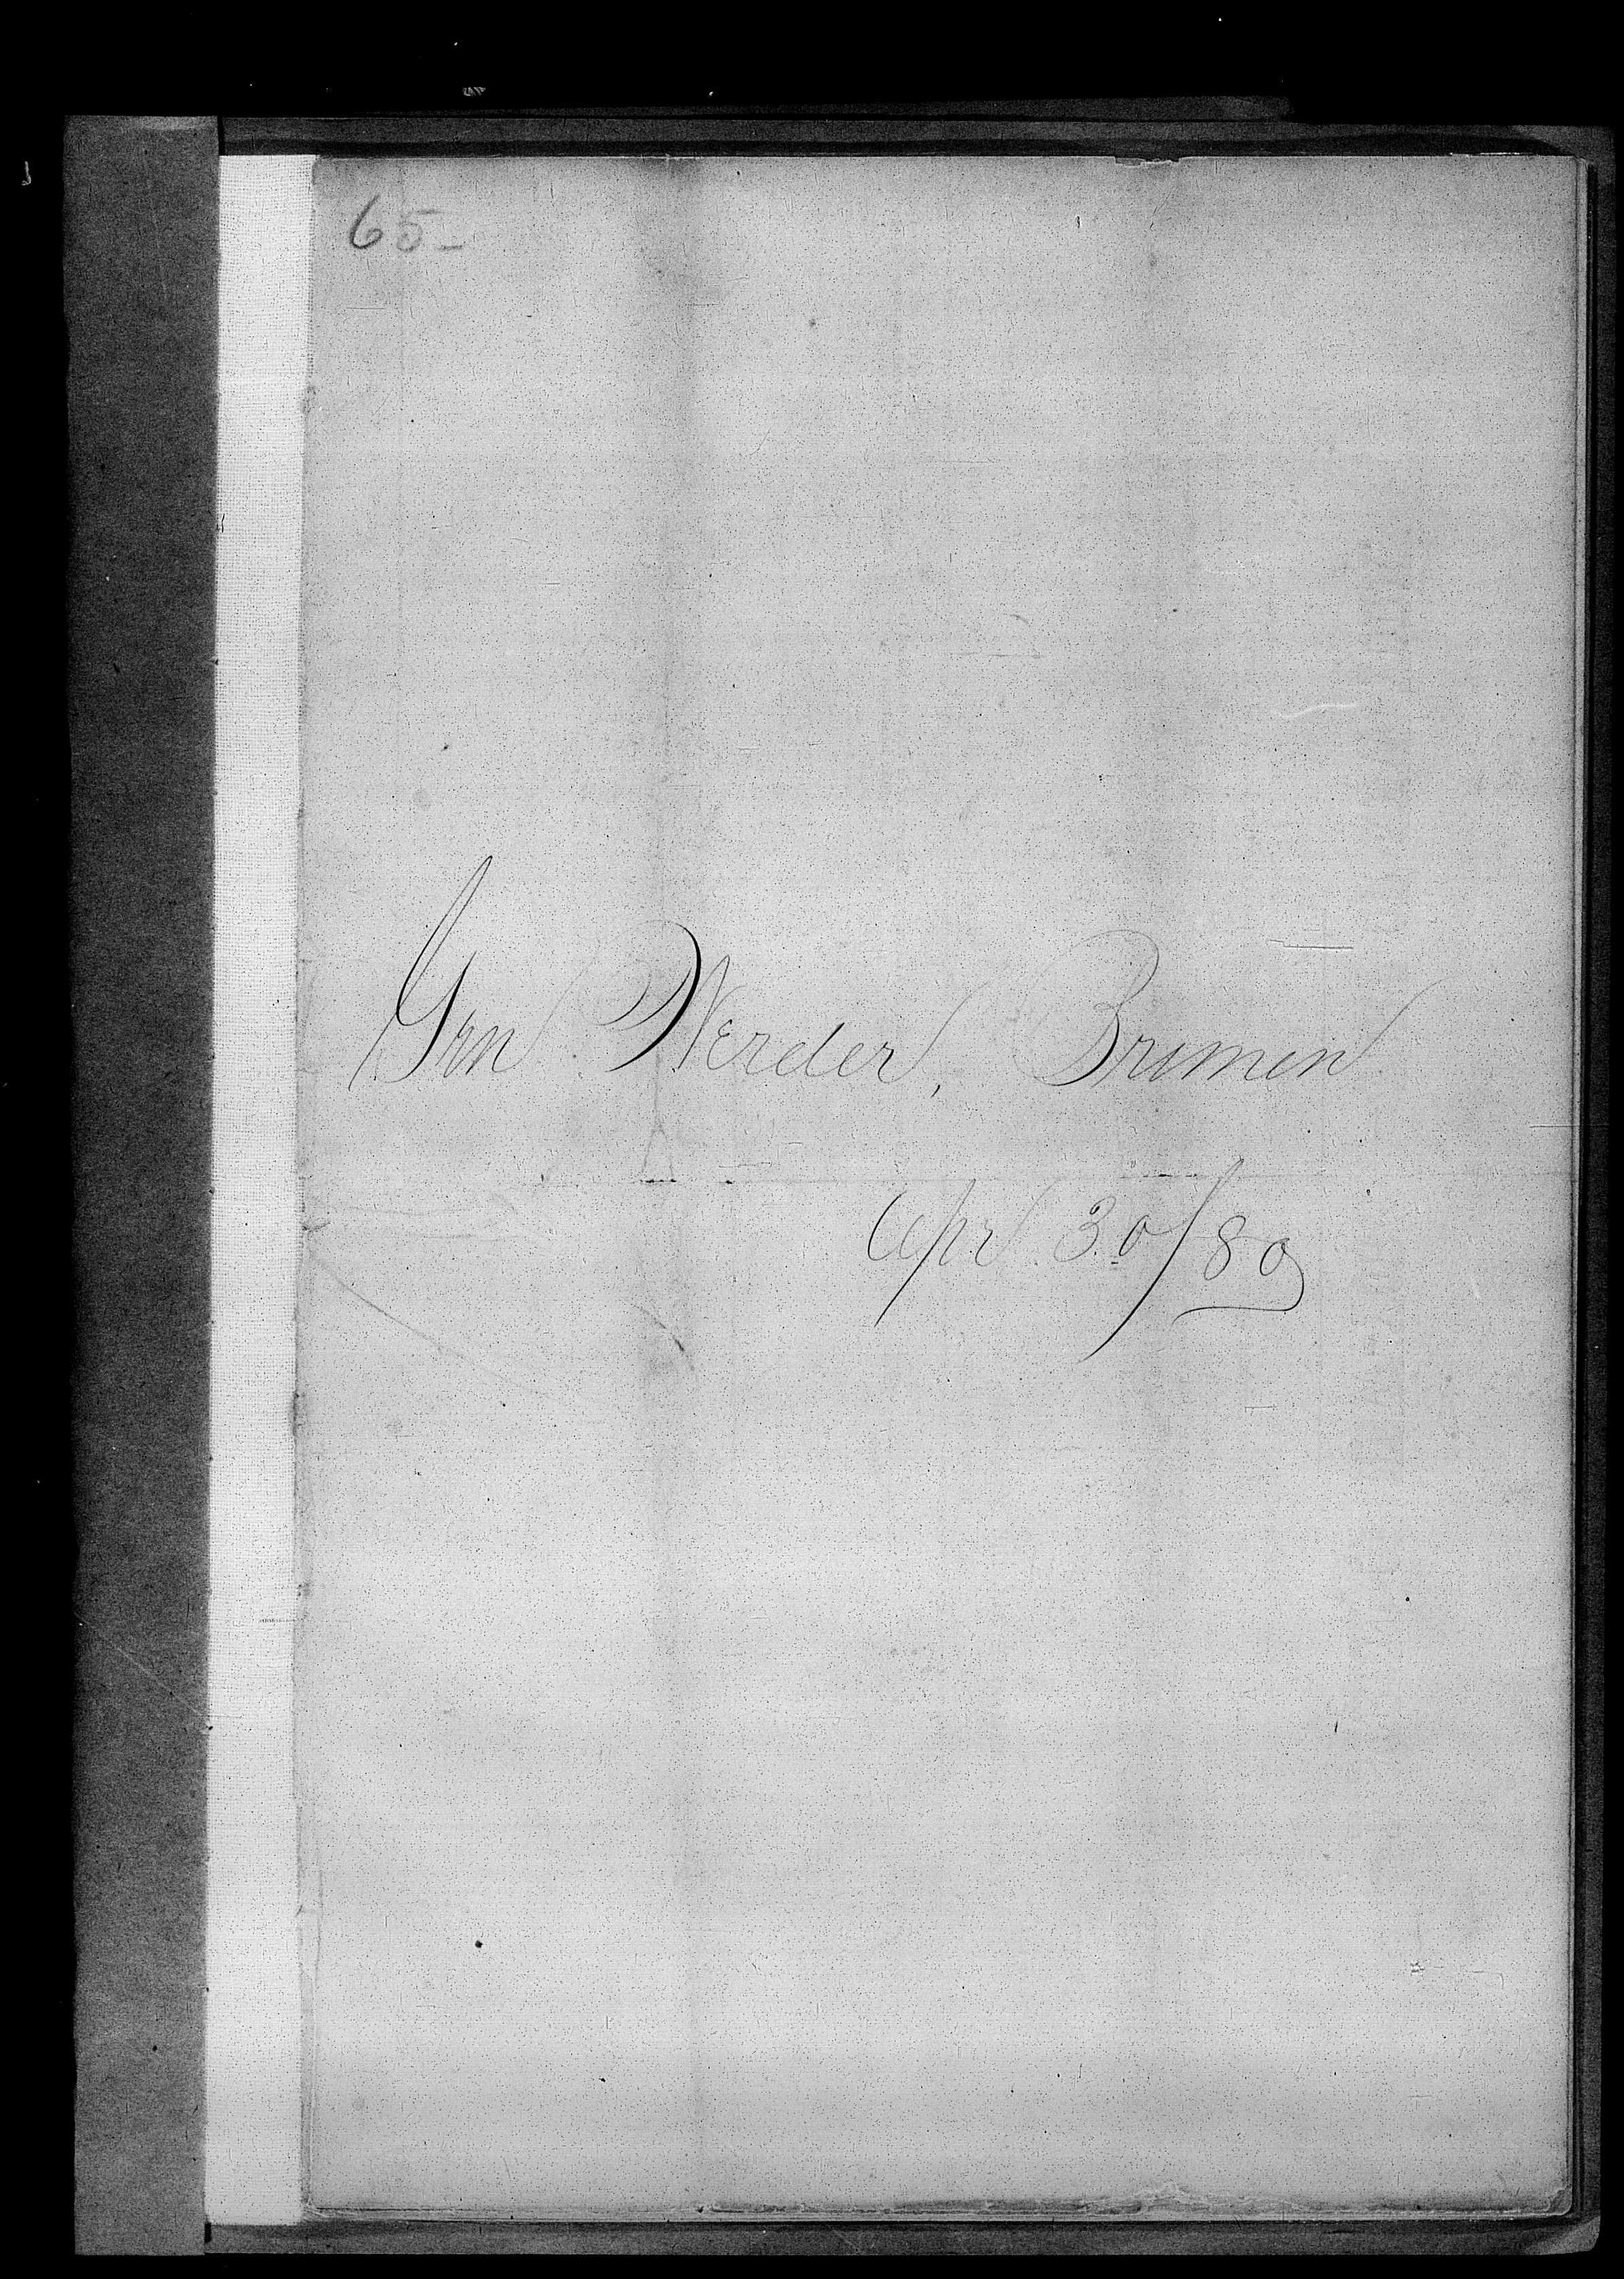 65-
Gen Werder, Bremen
Apr 30/80